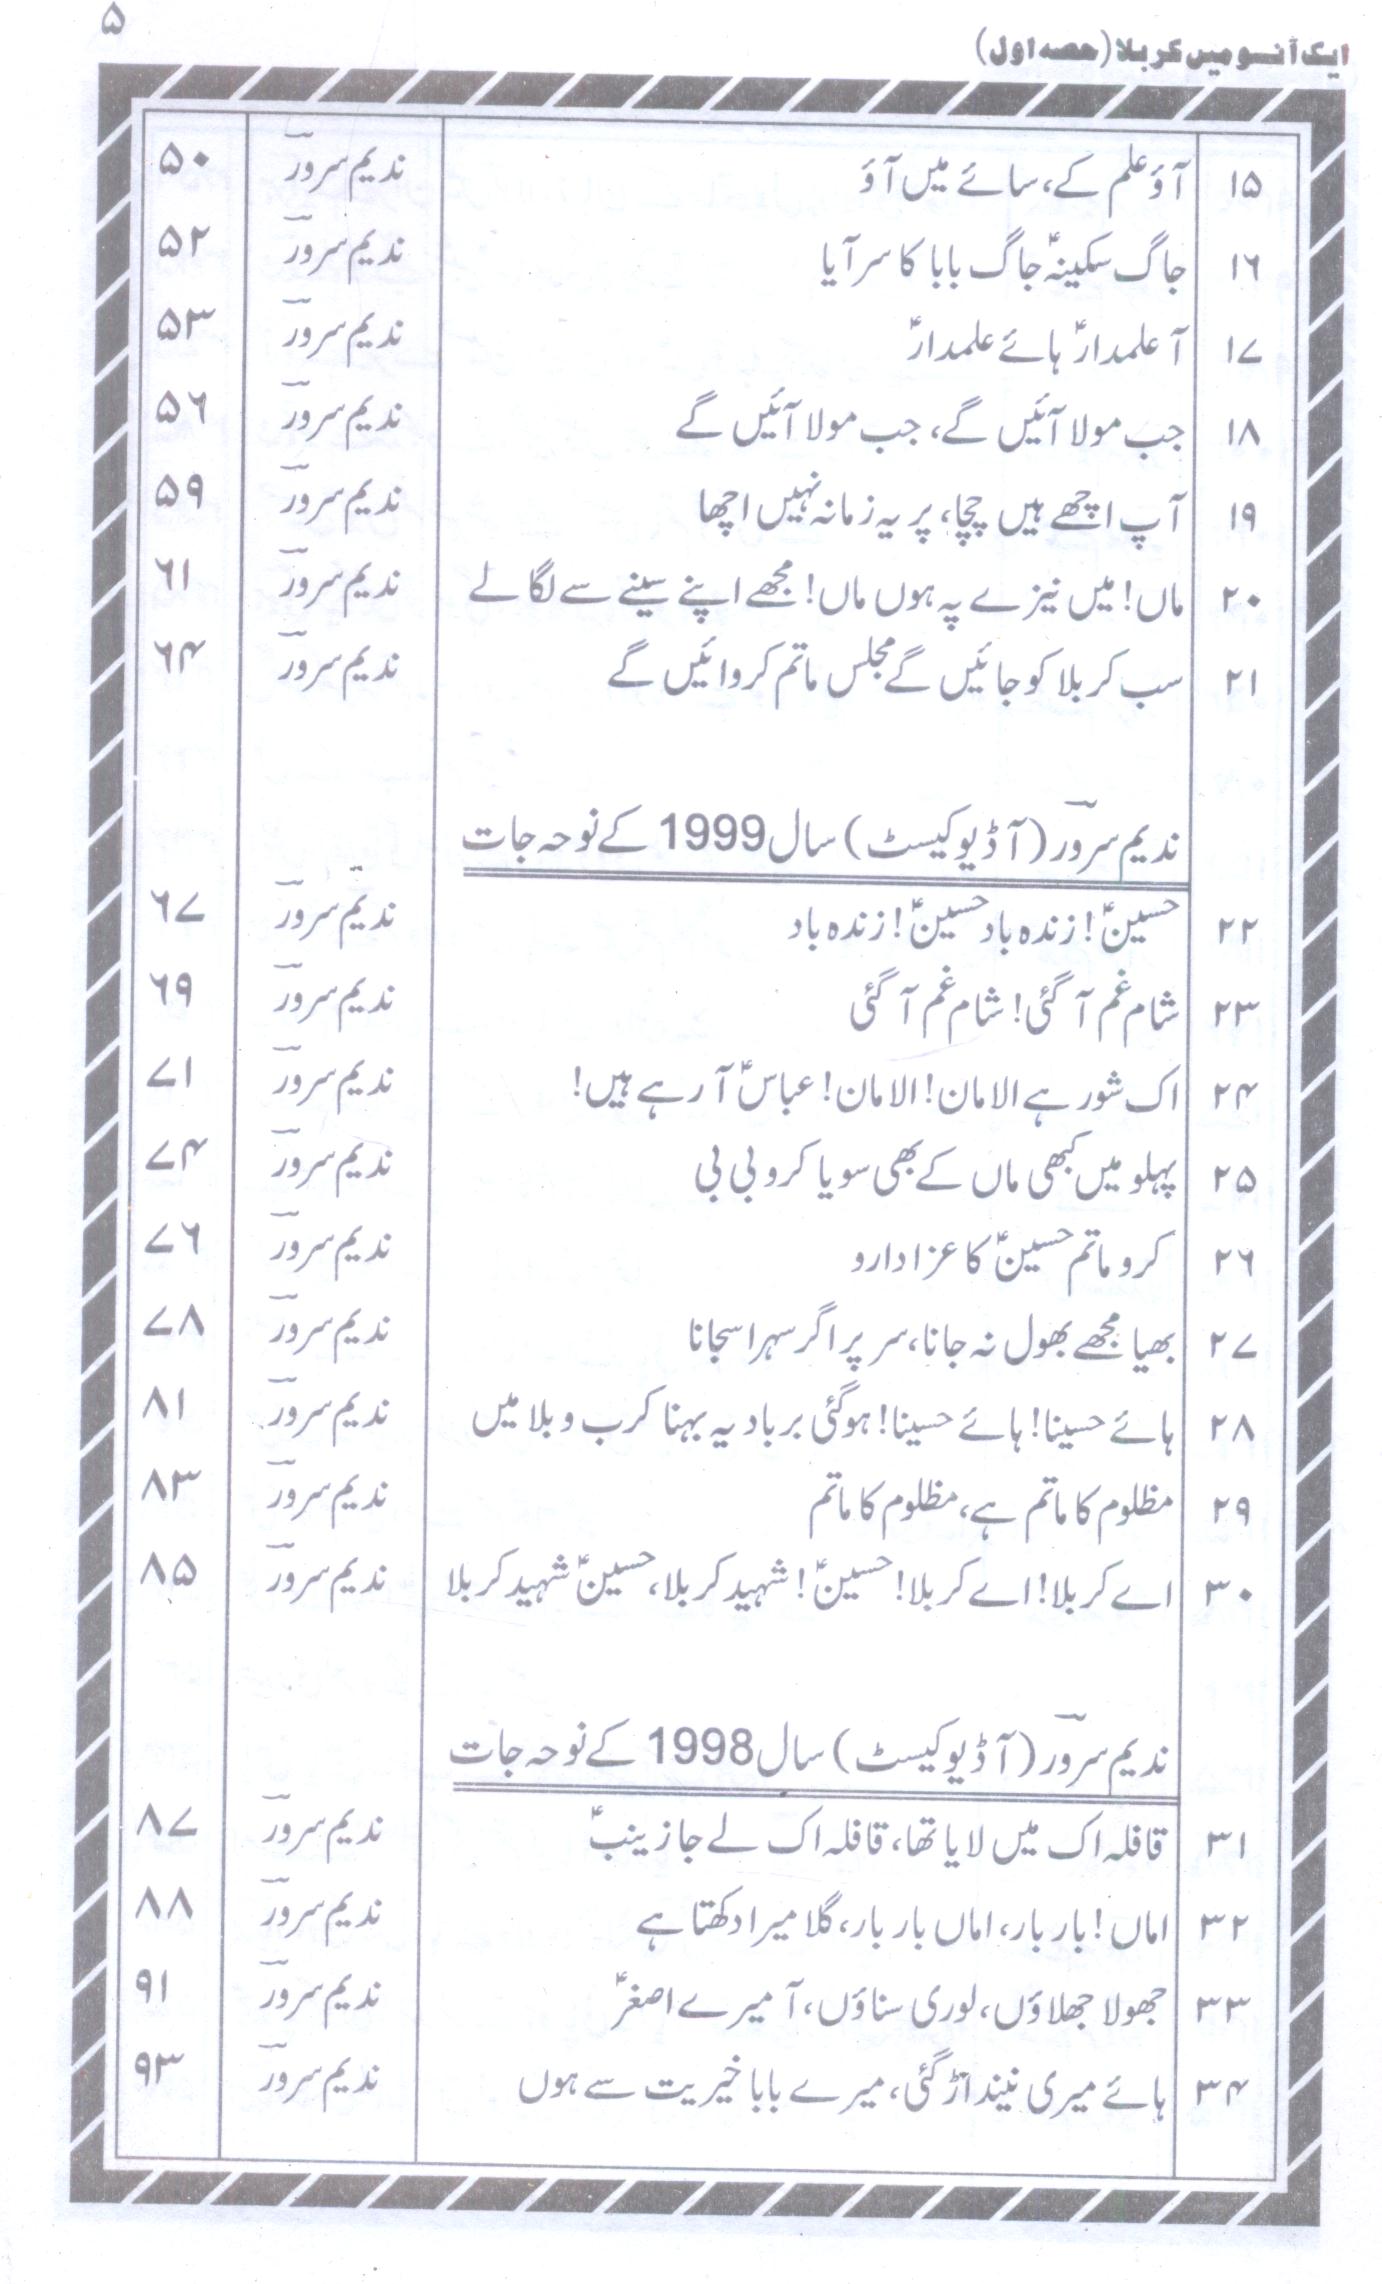 ایک آنسو میں کربلا (حصہ اول) ۵
۱۵ آؤ علم کے، سائے میں آؤ ندیم سرور ۵۰
۱۶ جاگ سکینہؑ جاگ بابا کا سر آیا ندیم سرور ۵۲
۱۷ آ علمدارؑ ہائے علمدارؑ ندیم سرور ۵۳
۱۸ جب مولا آئیں گے، جب مولا آئیں گے ندیم سرور ۵۶
۱۹ آپ اچھے ہیں چچا، پر یہ زمانہ نہیں اچھا ندیم سرور ۵۹
۲۰ ماں! میں نیزے پہ ہوں ماں! مجھے اپنے سینے سے لگا لے ندیم سرور ۶۱
۲۱ سب کربلا کو جائیں گے مجلس ماتم کروائیں گے ندیم سرور ۶۴
ندیم سرور (آڈیو کیسٹ) سال 1999 کے نوحہ جات
۲۲ حسینؑ! زندہ باد حسینؑ! زندہ باد ندیم سرور ۶۷
۲۳ شام غم آ گئی! شام غم آ گئی ندیم سرور ۶۹
۲۴ اک شور ہے الامان! الامان! عباسؑ آ رہے ہیں! ندیم سرور ۷۱
۲۵ پہلو میں کبھی ماں کے بھی سویا کرو بی بی ندیم سرور ۷۴
۲۶ کرو ماتم حسینؑ کا عزادارو ندیم سرور ۷۶
۲۷ بھیا مجھے بھول نہ جانا، سر پر اگر سہرا سجانا ندیم سرور ۷۸
۲۸ ہائے حسینا! ہائے حسینا! ہو گئی برباد یہ بہنا کرب و بلا میں ندیم سرور ۸۱
۲۹ مظلوم کا ماتم ہے، مظلوم کا ماتم ندیم سرور ۸۳
۳۰ اے کربلا! اے کربلا! حسینؑ! شہید کربلا، حسینؑ شہید کربلا ندیم سرور ۸۵
ندیم سرور (آڈیو کیسٹ) سال 1998 کے نوحہ جات
۳۱ قافلہ اک میں لایا تھا، قافلہ اک لے جا زینبؑ ندیم سرور ۸۷
۳۲ اماں! بار بار، اماں بار بار، گلا میرا دکھتا ہے ندیم سرور ۸۸
۳۳ جھولا جھلاؤں، لوری سناؤں، آ میرے اصغرؑ ندیم سرور ۹۱
۳۴ ہائے میری نیند اڑ گئی، میرے بابا خیریت سے ہوں ندیم سرور ۹۳